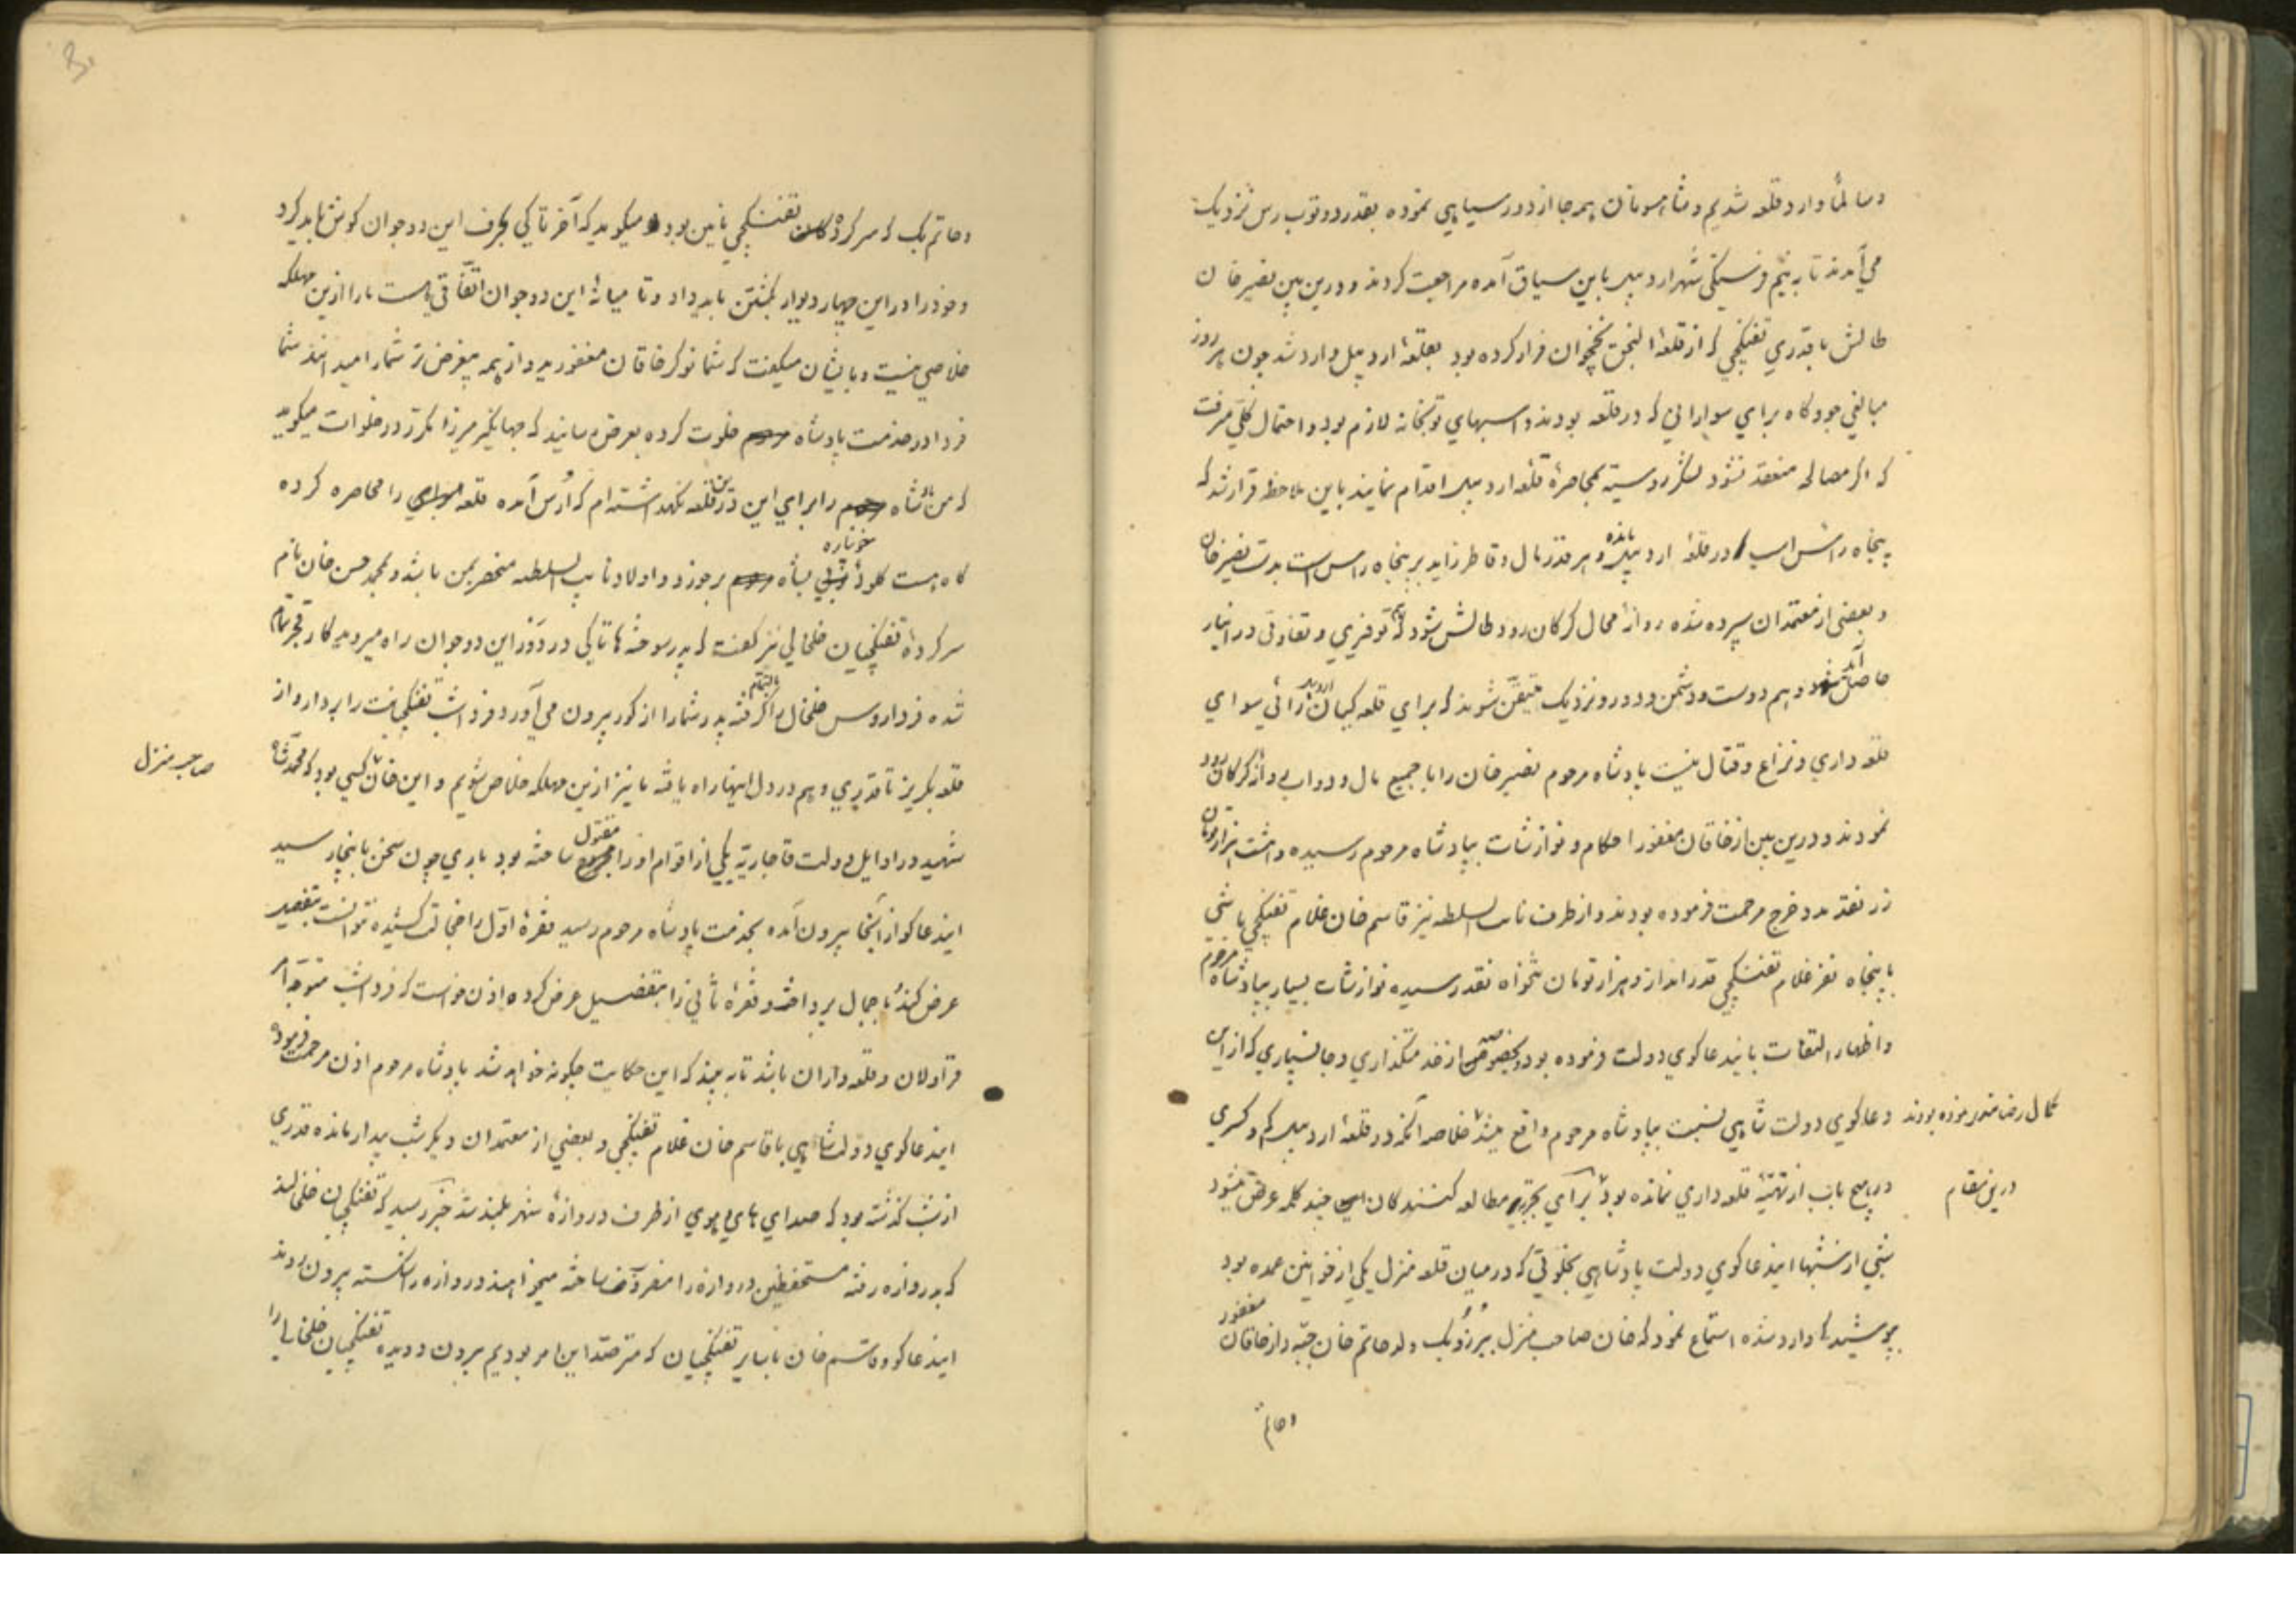 و سالماً وارد قلعه شدیم و شاهسونان همه جا از دور سیاهی نموده بقدر دو توپ رس نزدیک
می آمدند تا به نیم فرسنگی شهر اردبیل باین سیاق آمده مراجعت کردند و درین بین نصیر خان
طالش با قدری تفنگچی که از قلعهٔ النجق نخجوان فرار کرده بود بقلعهٔ اردبیل وارد شد چون هر روز
مبالغی جو و کاه برای سوارانی که در قلعه بودند و اسبهای توپخانه لازم بود و احتمال کلی میرفت
که اگر مصالحه منعقد نشود لشکر روسیه بمحاصرهٔ قلعه اردبیل اقدام نمایند باین ملاحظه قرار شد که
پنجاه راس اسب در قلعهٔ اردبیل مانده و هر قدر مال و قاطر زاید بر پنجاه راس است بدست نصیر خان
و بعضی از معتمدان سپرده شده روانهٔ محال کرکان رود طالش شود که هم توفیری و تفاوتی در انبار
حاصل آید و هم دوست و دشمن و دور و نزدیک متیقن شوند که برای قلعه کیان اردبیل رائی سوای
قلعه داری و نزاع و قتال نیست پادشاه مرحوم نصیر خان را با جمیع مال و دواب روانهٔ کرکان رود
نمودند و درین بین از خاقان مغفور احکام و نوازشات بپادشاه مرحوم رسیده و هشت هزار تومان
زر نقد مدد خرج مرحمت فرموده بودند و از طرف نائب السلطنه نیز قاسم خان غلام تفنگچی باشی
با پنجاه نفر غلام تفنگچی قدرانداز و هزار تومان تنخواه نقد رسیده نوازشات بسیار بپادشاه مرحوم
و اظهار التفات باین دعاکوی دولت فرموده بود و بخصوصه از خدمتگذاری و جانسپاری که از این
کمال رضامندی نموده بودند دعاکوی دولت شاهی نسبت بپادشاه مرحوم واقع میشد خلاصه آنکه در قلعهٔ اردبیل کم و کسری
درین مقام در هیچ باب از تهیهٔ قلعه داری نمانده بود برای تجربهٔ مطالعه کنندکان چند کلمه عرض میشود
شبی از شبها این دعاکوی دولت پادشاهی بخلوتی که در میان قلعه منزل یکی از خوانین عمده بود
پوشیده وارد شده استماع نمود که خان صاحب منزل ببرزو بک ولد حاتم خان جبه دار خاقان مغفور
و حاتم
و حاتم بک که سرکردهٔ تفنگچی نائین بود میکوید که آخر تا کی بحرف این دو جوان کوش باید کرد
و خود را در این چهار دیوار بکشتن باید داد و تا میانهٔ این دو جوان اتفاقی هست ما را ازین مهلکه
خلاصی نیست و بایشان میکفت که شما نوکر خاقان مغفورید و از همه بیغرض تر شما را میدانند شما
فردا در خدمت پادشاه خلوت کرده بعرض رسانید که جهانگیر میرزا مکرر در خلوات میکوید
که من شاه را برای این درین قلعه نگهداشته ام که اُرس آمده قلعه را محاصره کرده
کاه هست کلوهٔ خونپاره بشاه برخورد و اولاد نایب السلطنه منحصر بمن باشد و محمد حسن خان نام
سرکردهٔ تفنگچیان خلخالی نیز کفت که پدر سوخته ها تا کی در دور این دو جوان راه میروید کار قجر تمام
شده فردا روس خلخال را بالتمام گرفته پدر شما را از کور بیرون می آورد فردا شب تفنگچیانت را بردار و از
قلعه بکریز تا قدری وهم در دل اینها راه یافته ما نیز ازین مهلکه خلاص شویم و این خان کسی بود که محمد شاه صاحب منزل
شهید در اوایل دولت قاجاریه یکی از اقوام او را مقتول ساخته بود باری چون سخن باینجا رسید
این دعاکو از آنجا بیرون آمده بخدمت پادشاه مرحوم رسید فقرهٔ اول را خجالت کشیده نتوانست بتفصیل
عرض کند باجمال پرداخته و فقرهٔ ثانی را بتفصیل عرض کرده اذن خواست که فردا شب متوجه
قراولان و قلعه داران باشد تا به بیند که این حکایت چکونه خواهد شد پادشاه مرحوم اذن مرحمت فرموده
این دعاکوی دولت شاهی با قاسم خان غلام تفنگچی و بعضی از معتمدان دیکر شب بیدار مانده قدری
از شب کذشته بود که صدای های و هوی از طرف دروازهٔ شهر بلند شد خبر رسید که تفنگچیان خلخالند
که بدروازه رفته مستحفظین دروازه را متفرق ساخته میخواهند دروازه را شکسته بیرون روند
این دعاکو و قاسم خان با سایر تفنگچیان که مترصد این امر بودیم بیرون دویده تفنگچیان خلخالی را